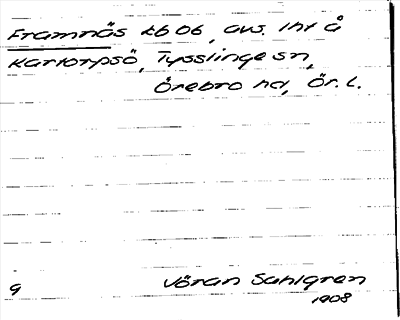 Framnäs tb 06, avs. lht å
Karlorpsö, Tysslinge sn,
Örebro hd, Ör. l.
9
Jöran Sahlgren
1908